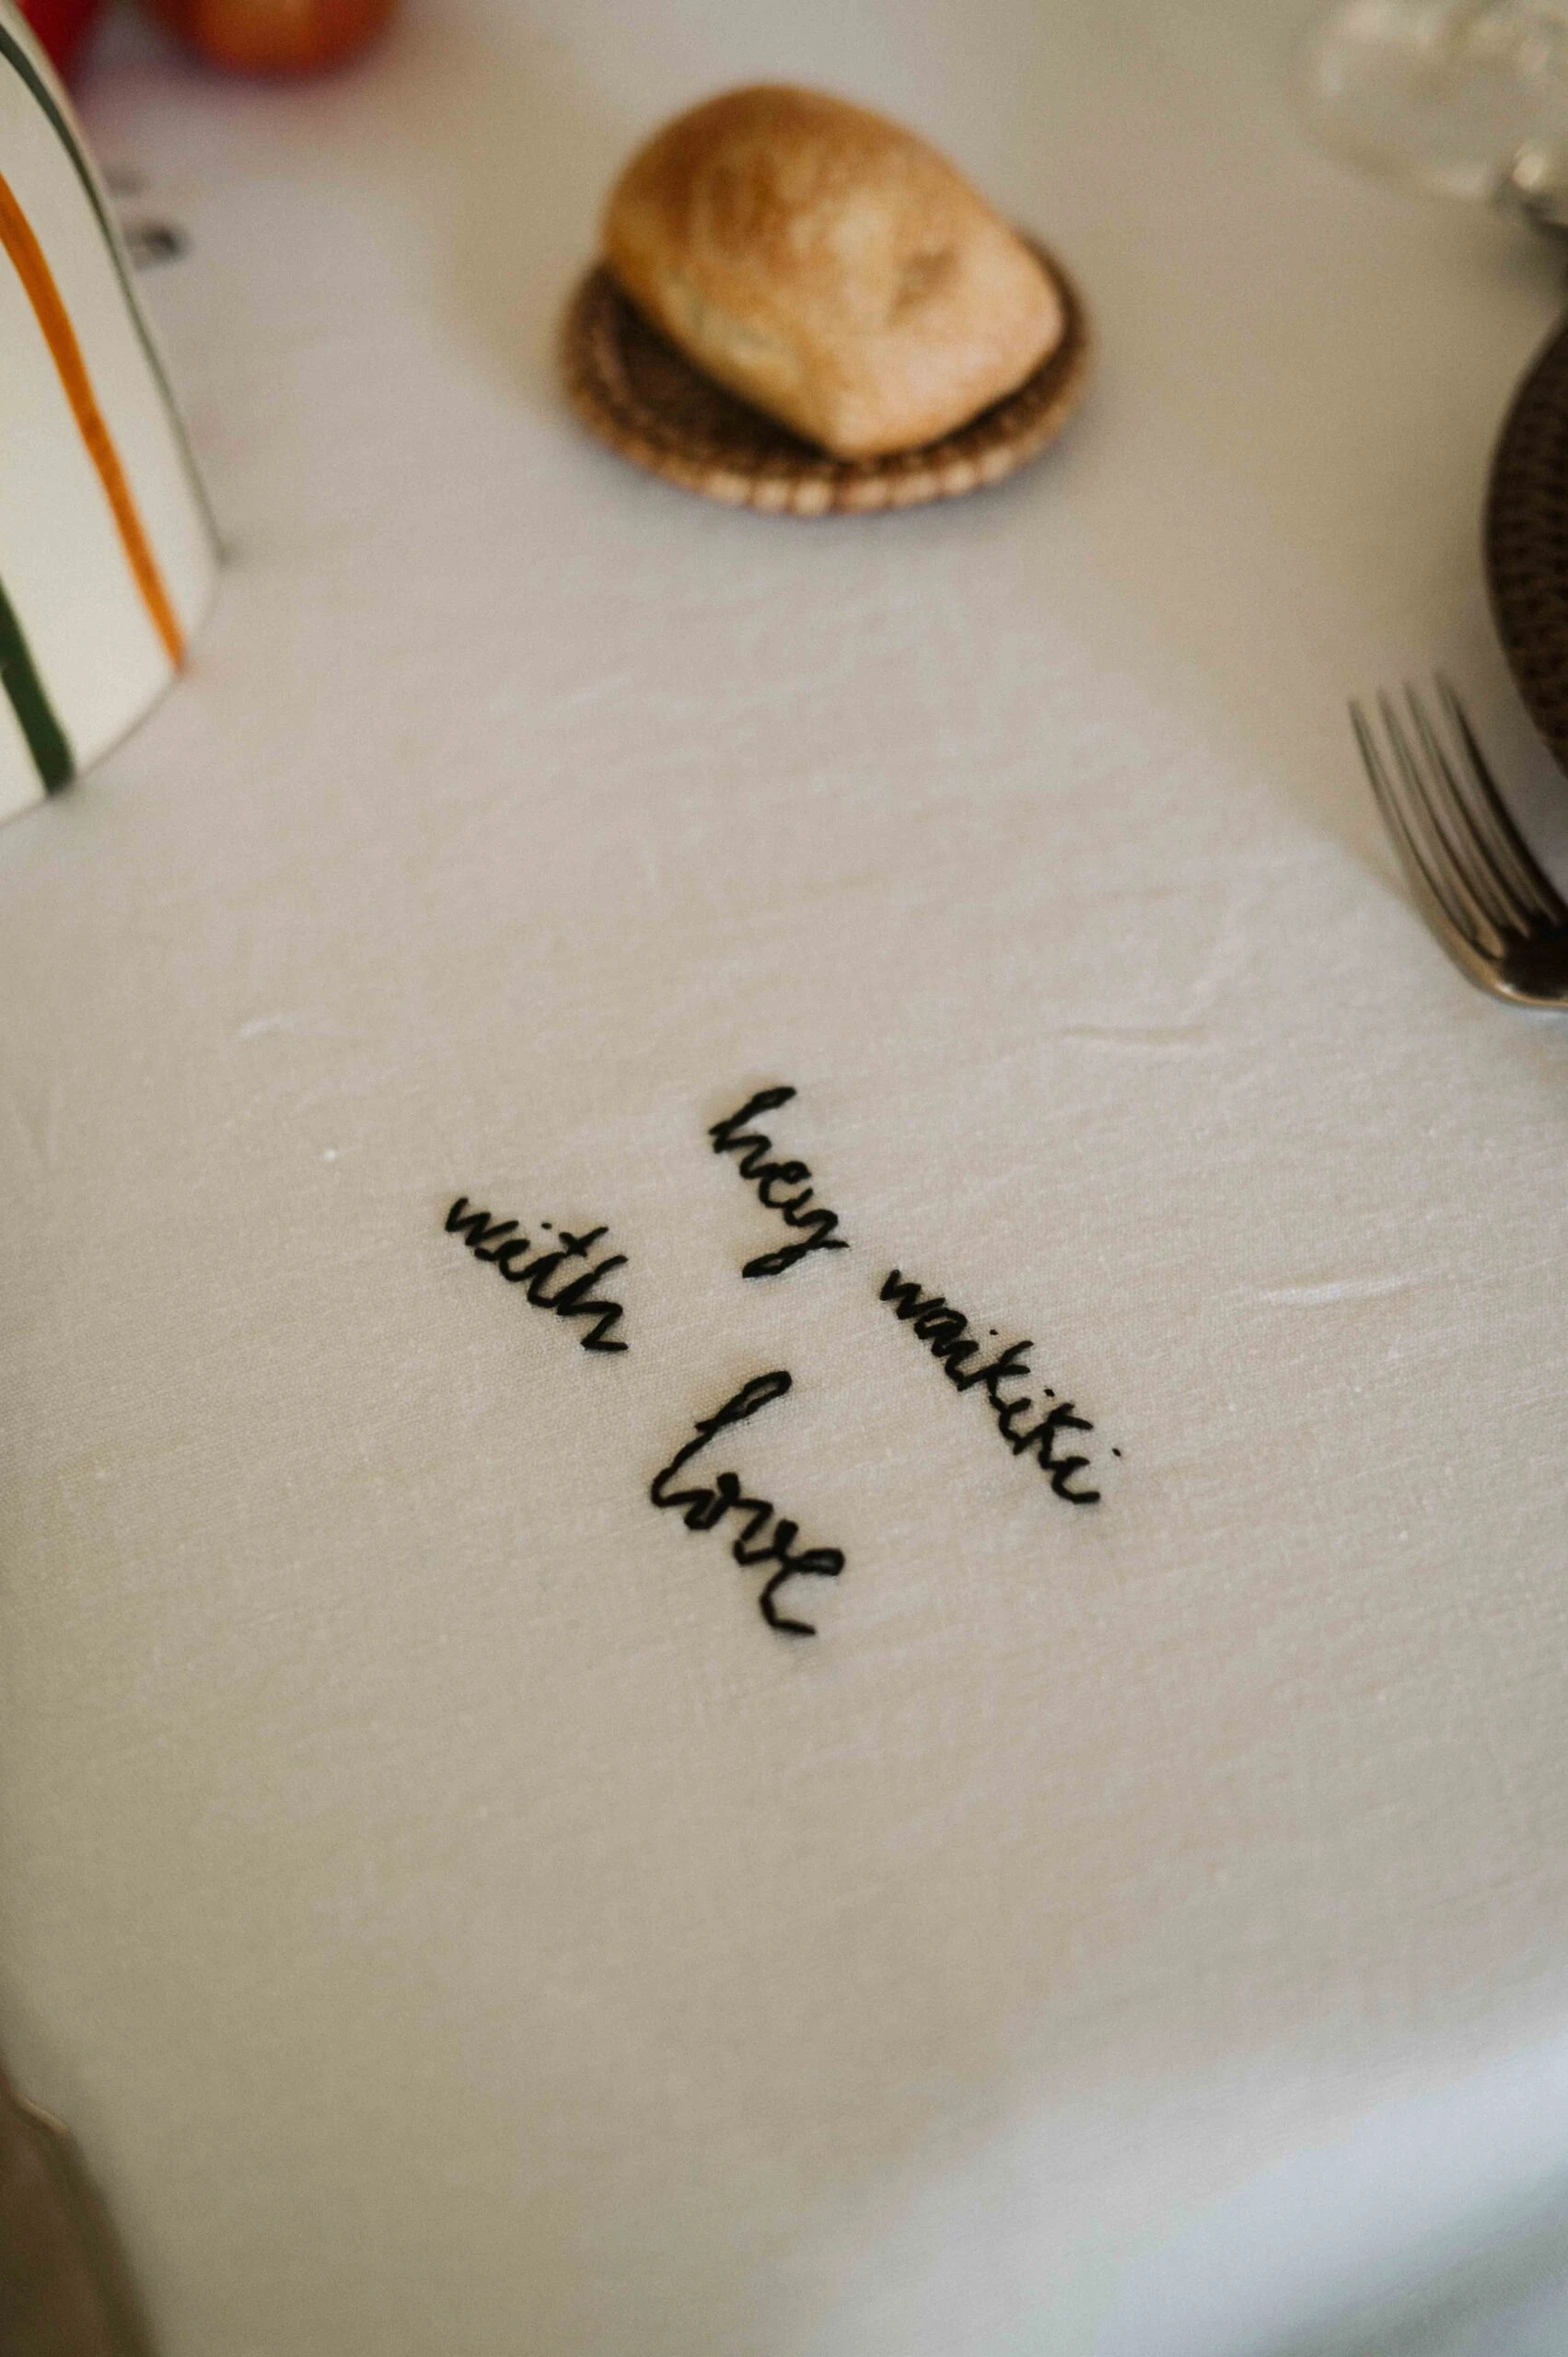 hey waikiki
with love